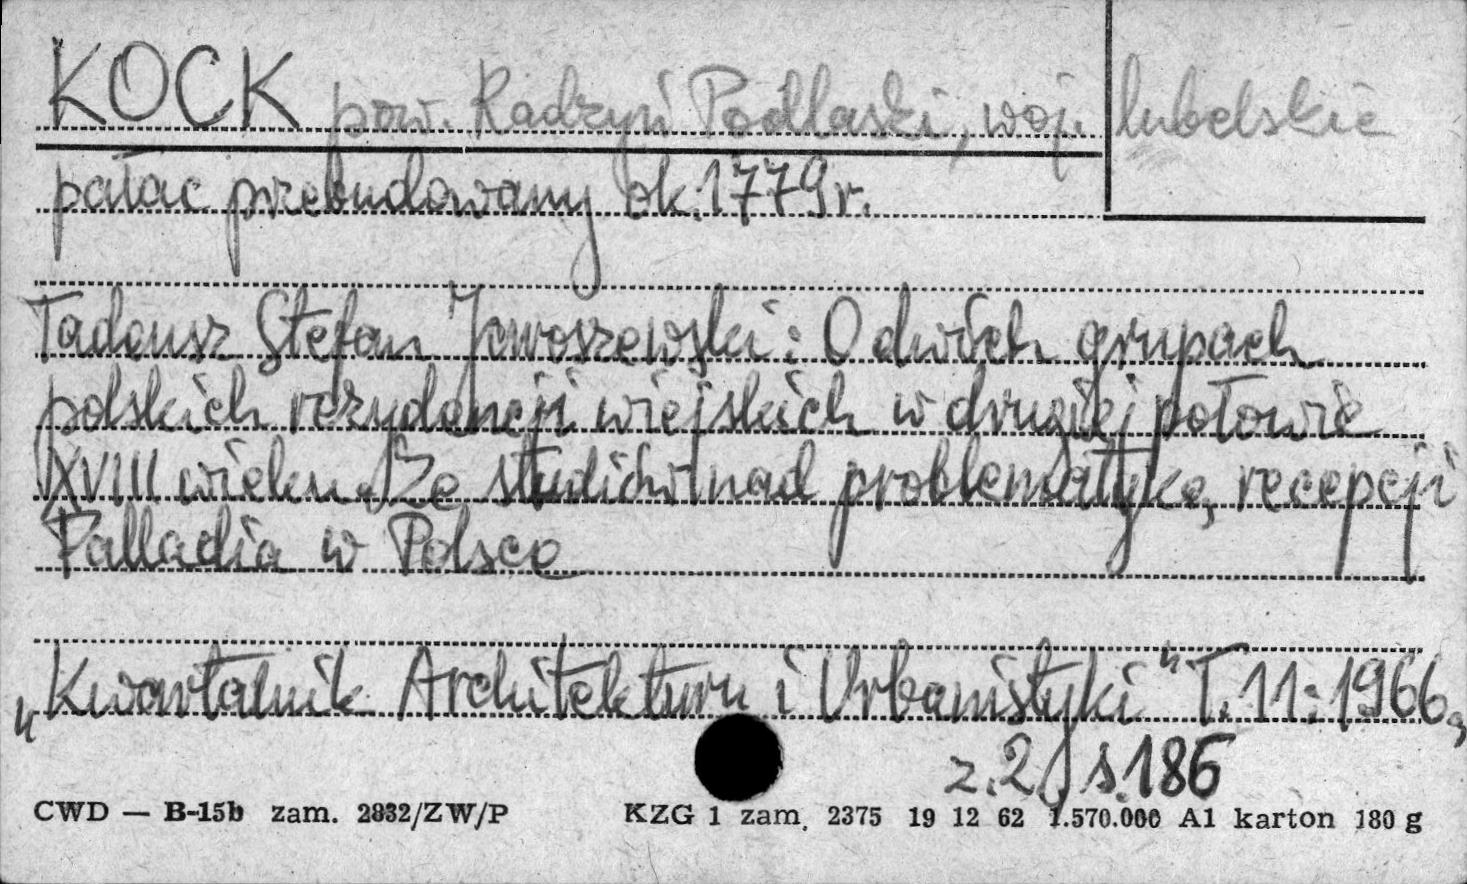 KOCK pow. Radzyń Podlaski, woj. lubelskie
pałac przebudowany ok. 1779 r.
Tadeusz Stefan Jaroszewski: O dwóch grupach
polskich rezydencji wiejskich w drugiej połowie
XVIII wieku. Ze studiów nad problematyką recepcji
Palladia w Polsce
„Kwartalnik Architektury i Urbanistyki" T. 11: 1966,
z. 2, s. 186
CWD — B-15b zam. 2832/ZW/P KZG 1 zam. 2375 19 12 62 1.570.000 A1 karton 180 g